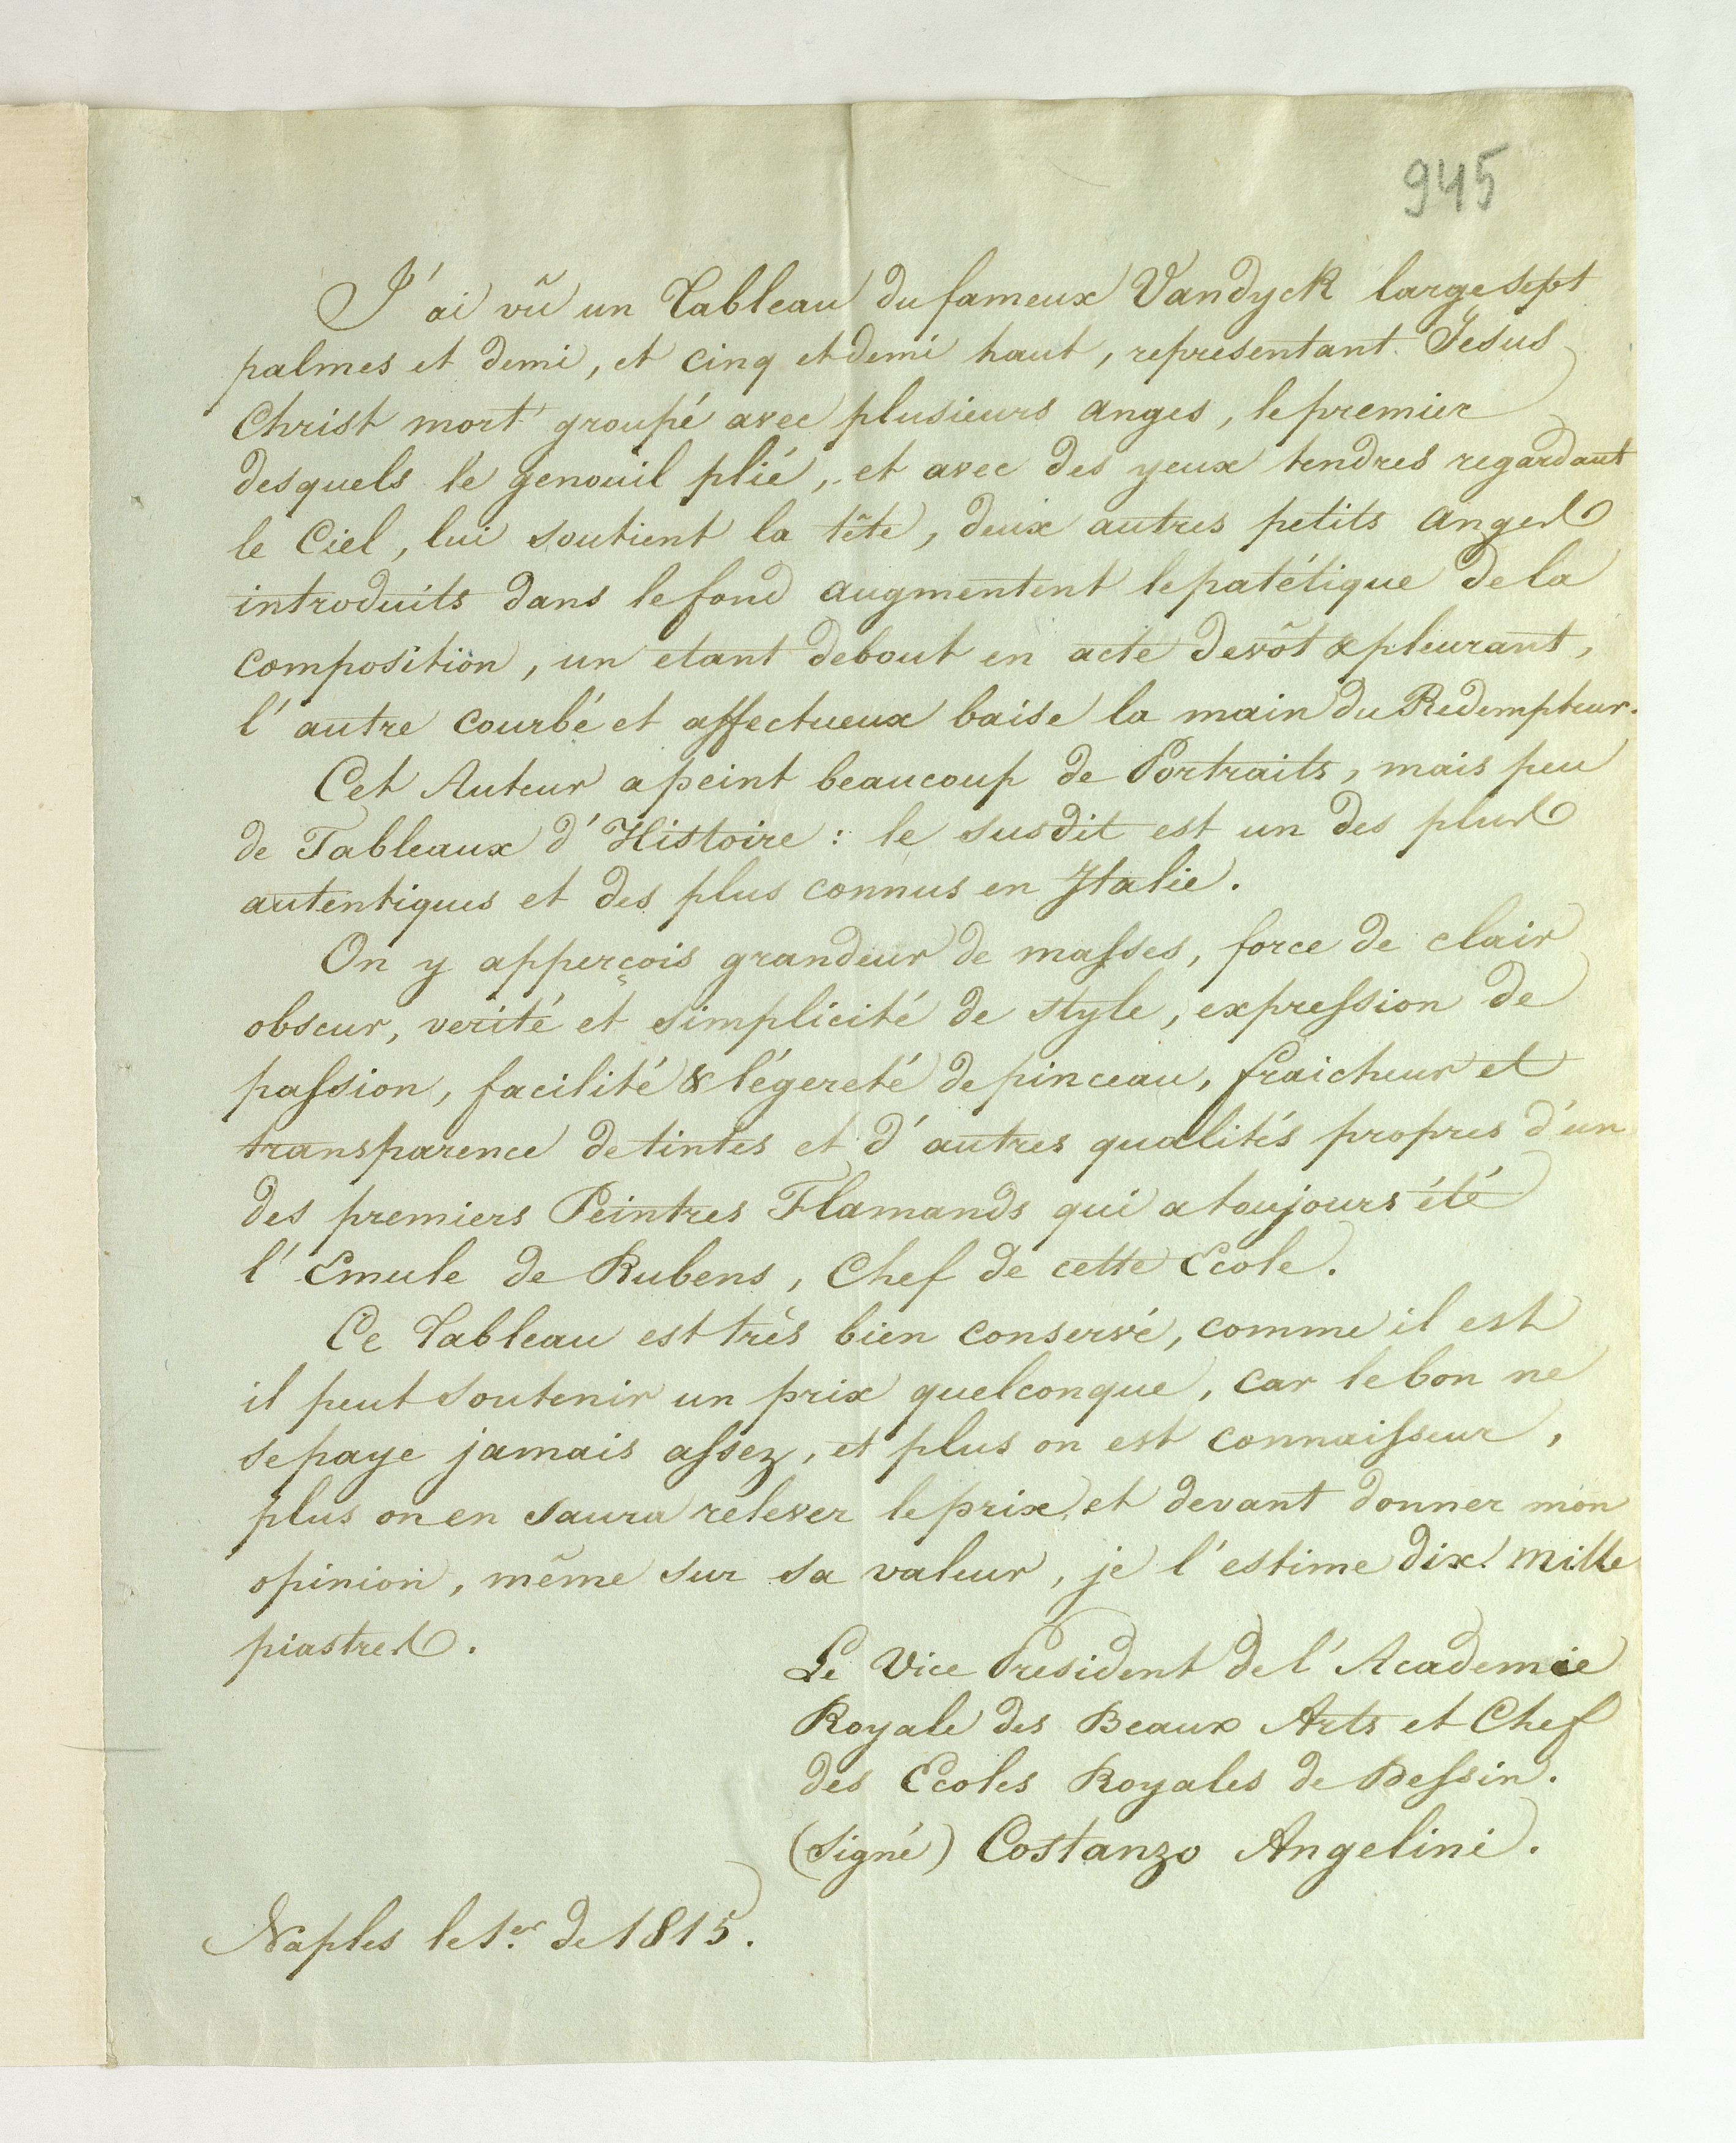 945
J'ai vû un Tableau du fameux Vandyck large sept
palmes et demi, et cinq et demi haut, representant Jesus
Christ mort groupé avec plusieurs anges, le premier
desquels le genouil plié, et avec des yeux tendres regardant
le Ciel, lui soutient la tête, deux autres petits anges
introduits dans le fond augmentent le patétique de la
composition, un etant debout en acte devôt & pleurant,
l'autre courbé et affectueux baise la main du Redempteur.
Cet Auteur a peint beaucoup de Portraits, mais peu
de Tableaux d'Histoire : le susdit est un des plus
autentiques et des plus connus en Italie.
On y apperçois grandeur de masses, force de clair
obscur, verité et simplicité de style, expression de
passion, facilité & légereté de pinceau, fraicheur et
transparence de tintes et d'autres qualités propres d'un
des premiers Peintres Flamands qui a toujours été
l'Emule de Rubens, Chef de cette Ecole.
Ce Tableau est très bien conservé, comme il est
il peut soutenir un prix quelconque, car le bon ne
se paye jamais assez, et plus on est connaisseur,
plus on en saura relever le prix, et devant donner mon
opinion, même sur sa valeur, je l'estime dix mille
piastres.
Le Vice President de l'Academie
Royale des Beaux Arts et Chef
des Ecoles Royales de Dessin.
(signé) Costanzo Angelini.
Naples le 1.er de 1815.